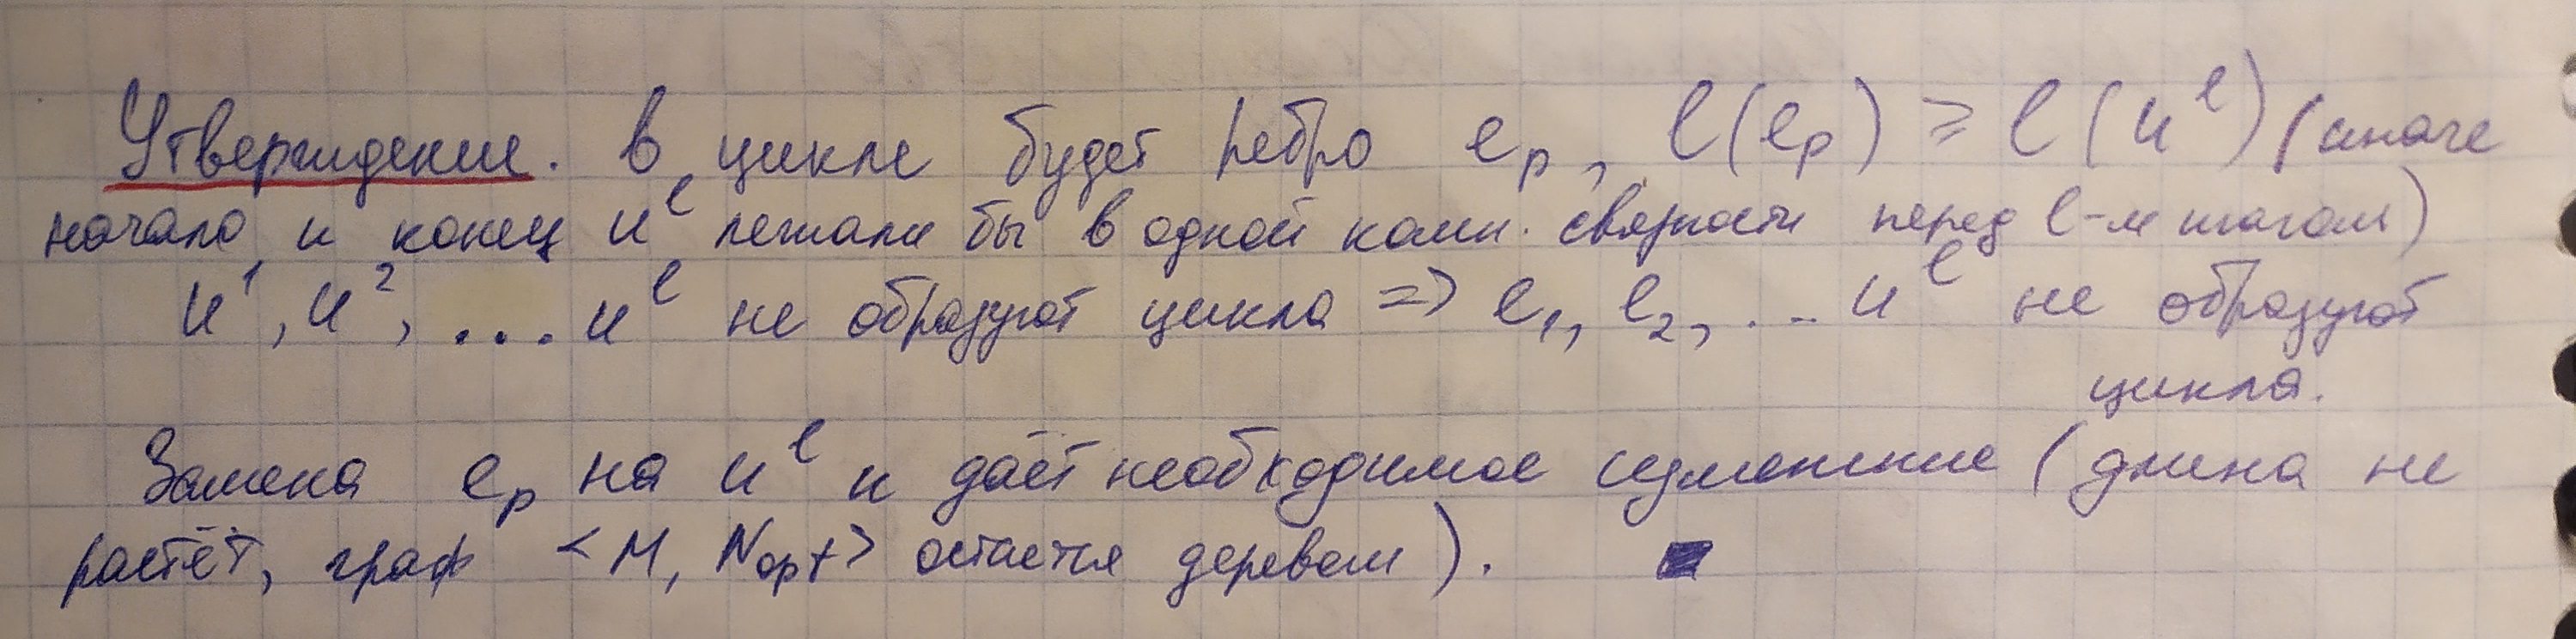 Утверждение. В цикле будет ребро eₚ, l(eₚ) ≥ l(uˡ) (иначе
начало и конец uˡ лежали бы в одной комп. связности перед l-м шагом)
u¹, u², .... uˡ не образуют цикла => e₁, e₂, ... uˡ не образуют
цикла.
Замена eₚ на uˡ и даёт необходимое изменение (длина не
растёт, граф <M, Nopt> остается деревом).